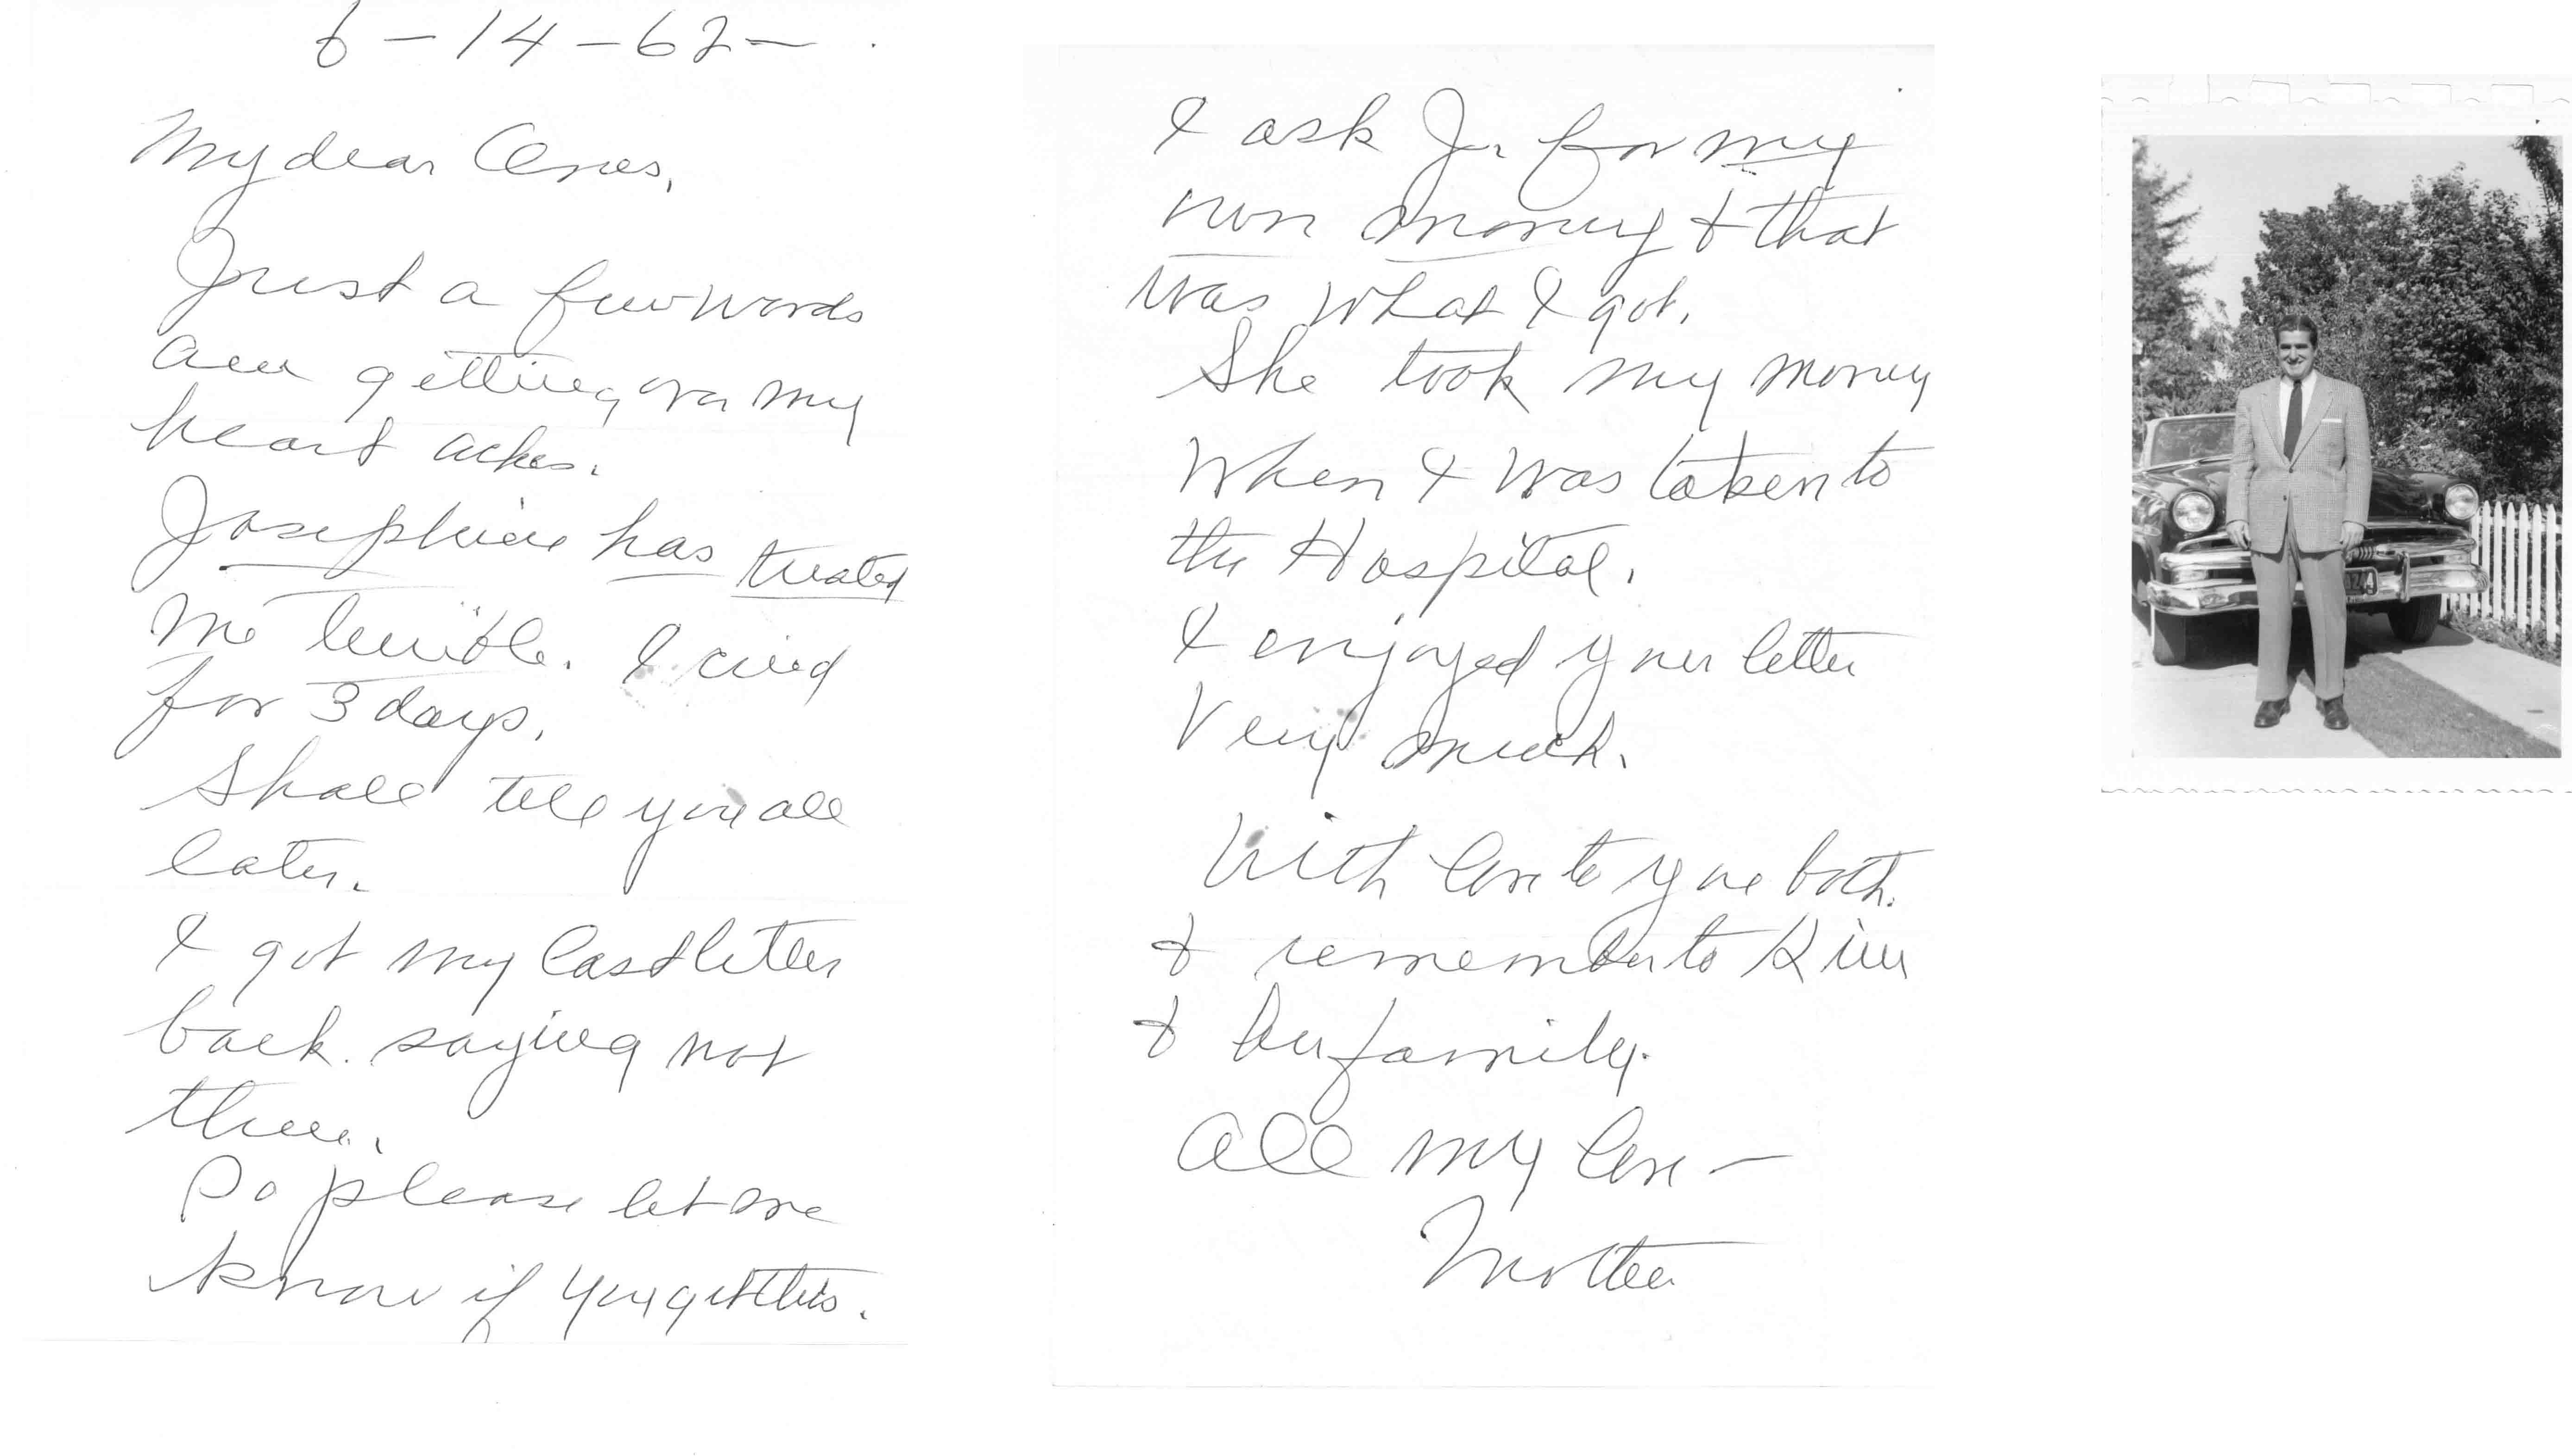 6-14-62-
My dear
Just a few words
am getting over my
heart aches.
Josephine has treated
me terrible. I cried
for 3 days.
Shall tell you all
later.
I got my last letter
back. saying not
there.
So please let me
know if you get this.
I ask Jo. for my
own money & that
was what I got.
She took my money
When I was taken to
the Hospital.
I enjoyed your letter
Very much.
With love to you both.
& remember to Kim
& her family.
All my love -
Mother